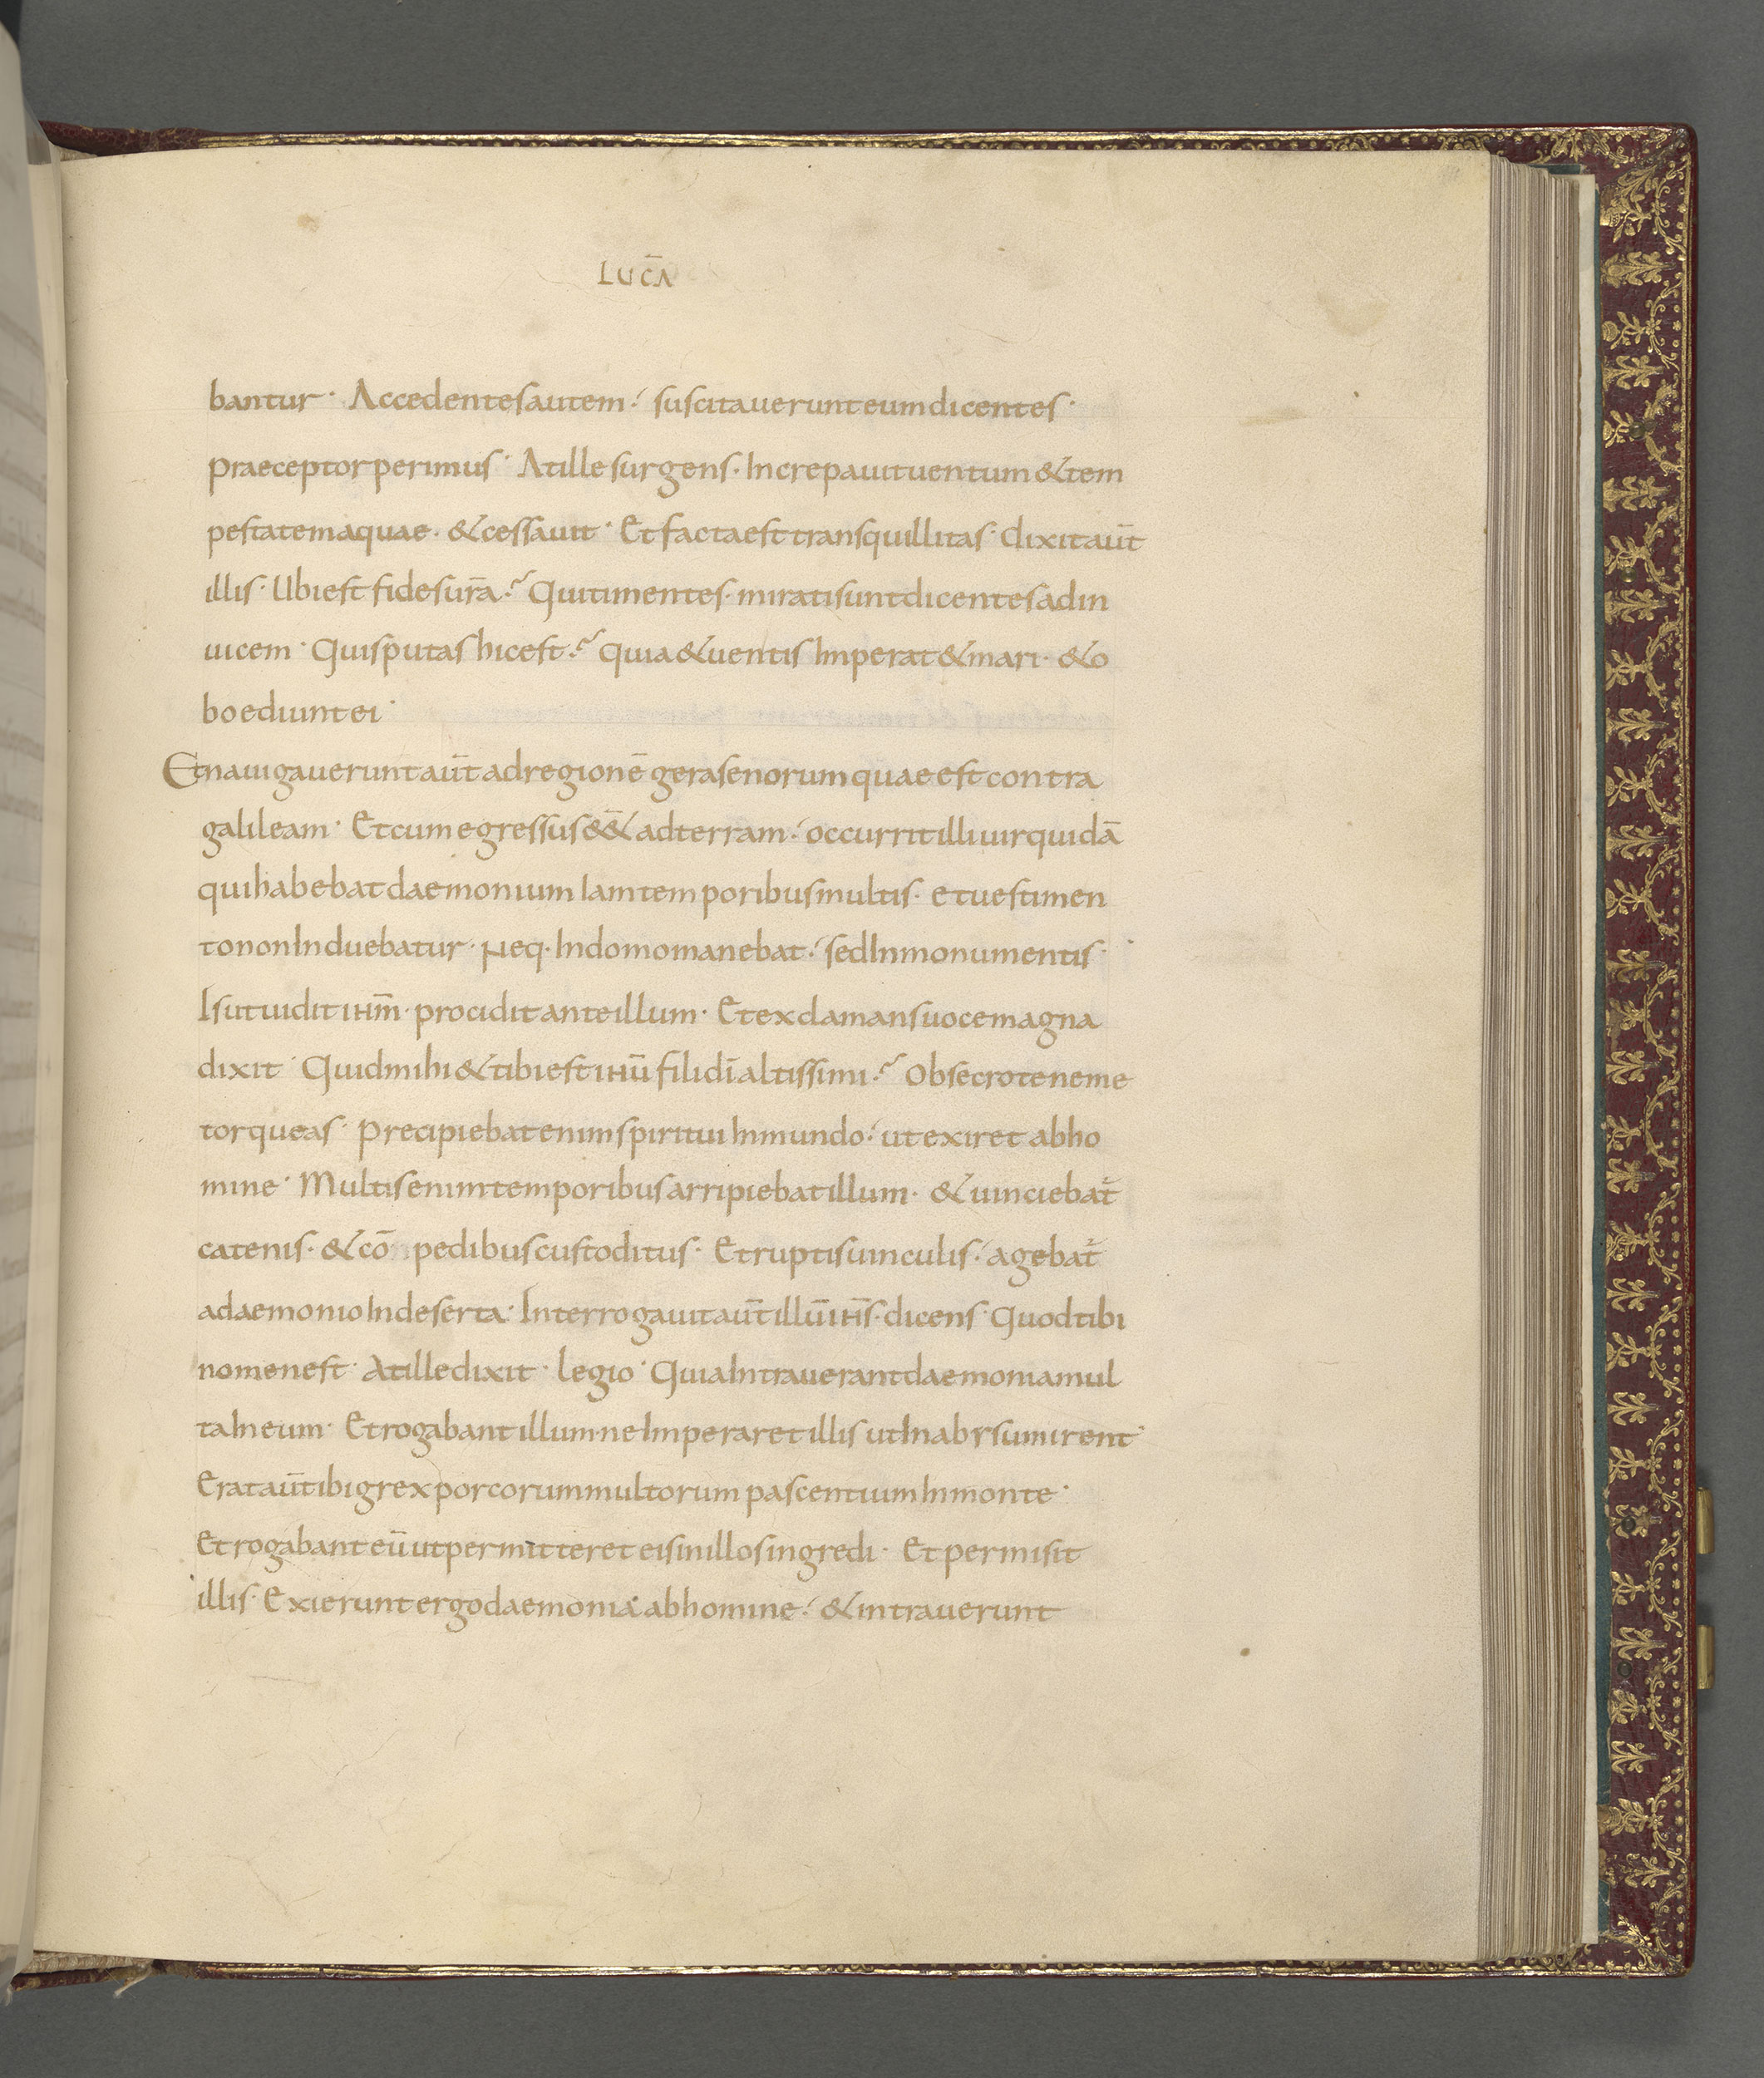 LUC̄A
bantur · Accedentes autem ·/ suscitaverunt eum dicentes ·
praeceptor perimus · At ille surgens · Increpauit uentum & tem
pestatem aquae · & cessauit · Et facta est transquillitas · dixit aūt
illis · Ubi est fides ur̄a ·? Qui timentes · mirati sunt dicentes adin
uicem · Quis putas hic est ·? quia & uentis Imperat & mari · & o
boediunt ei ·
Et nauigauerunt aūt ad regionē gerasenorum quae est contra
galileam · Et cum egressus &̄& ad terram ·/ occurrit illi uir quidā
qui habebat daemonium Iam temporibus multis · et uestimen
to non Induebatur · Neq · In domo manebat ·/ sed In monumentis ·
Is ut uidit ihm̄ · procidit ante illum · Et exclamans uoce magna
dixit · Quid mihi & tibi est ihū fili dī altissimi ·? Obsecro te ne me
torqueas · Precipiebat enim spiritui Inmundo ·/ ut exiret ab ho
mine · Multis enim temporibus arripiebat illum · & uinciebat̄
catenis · & cō pedibus custoditus · Et ruptis uinculis ·/ agebat̄
a daemonio In deserta · Interrogauit aūt illū ihs̄ · dicens · Quod tibi
nomen est · At ille dixit · legio · Quia Intrauerant daemonia mul
ta In eum · Et rogabant illum · ne Imperaret illis ut In abyssum irent ·
Erat aūt ibi grex porcorum multorum pascentium In monte ·
Et rogabant eū ut permitteret eis in illos ingredi · Et permisit
illis · Exierunt ergo daemonia ab homine ·/ & intrauerunt